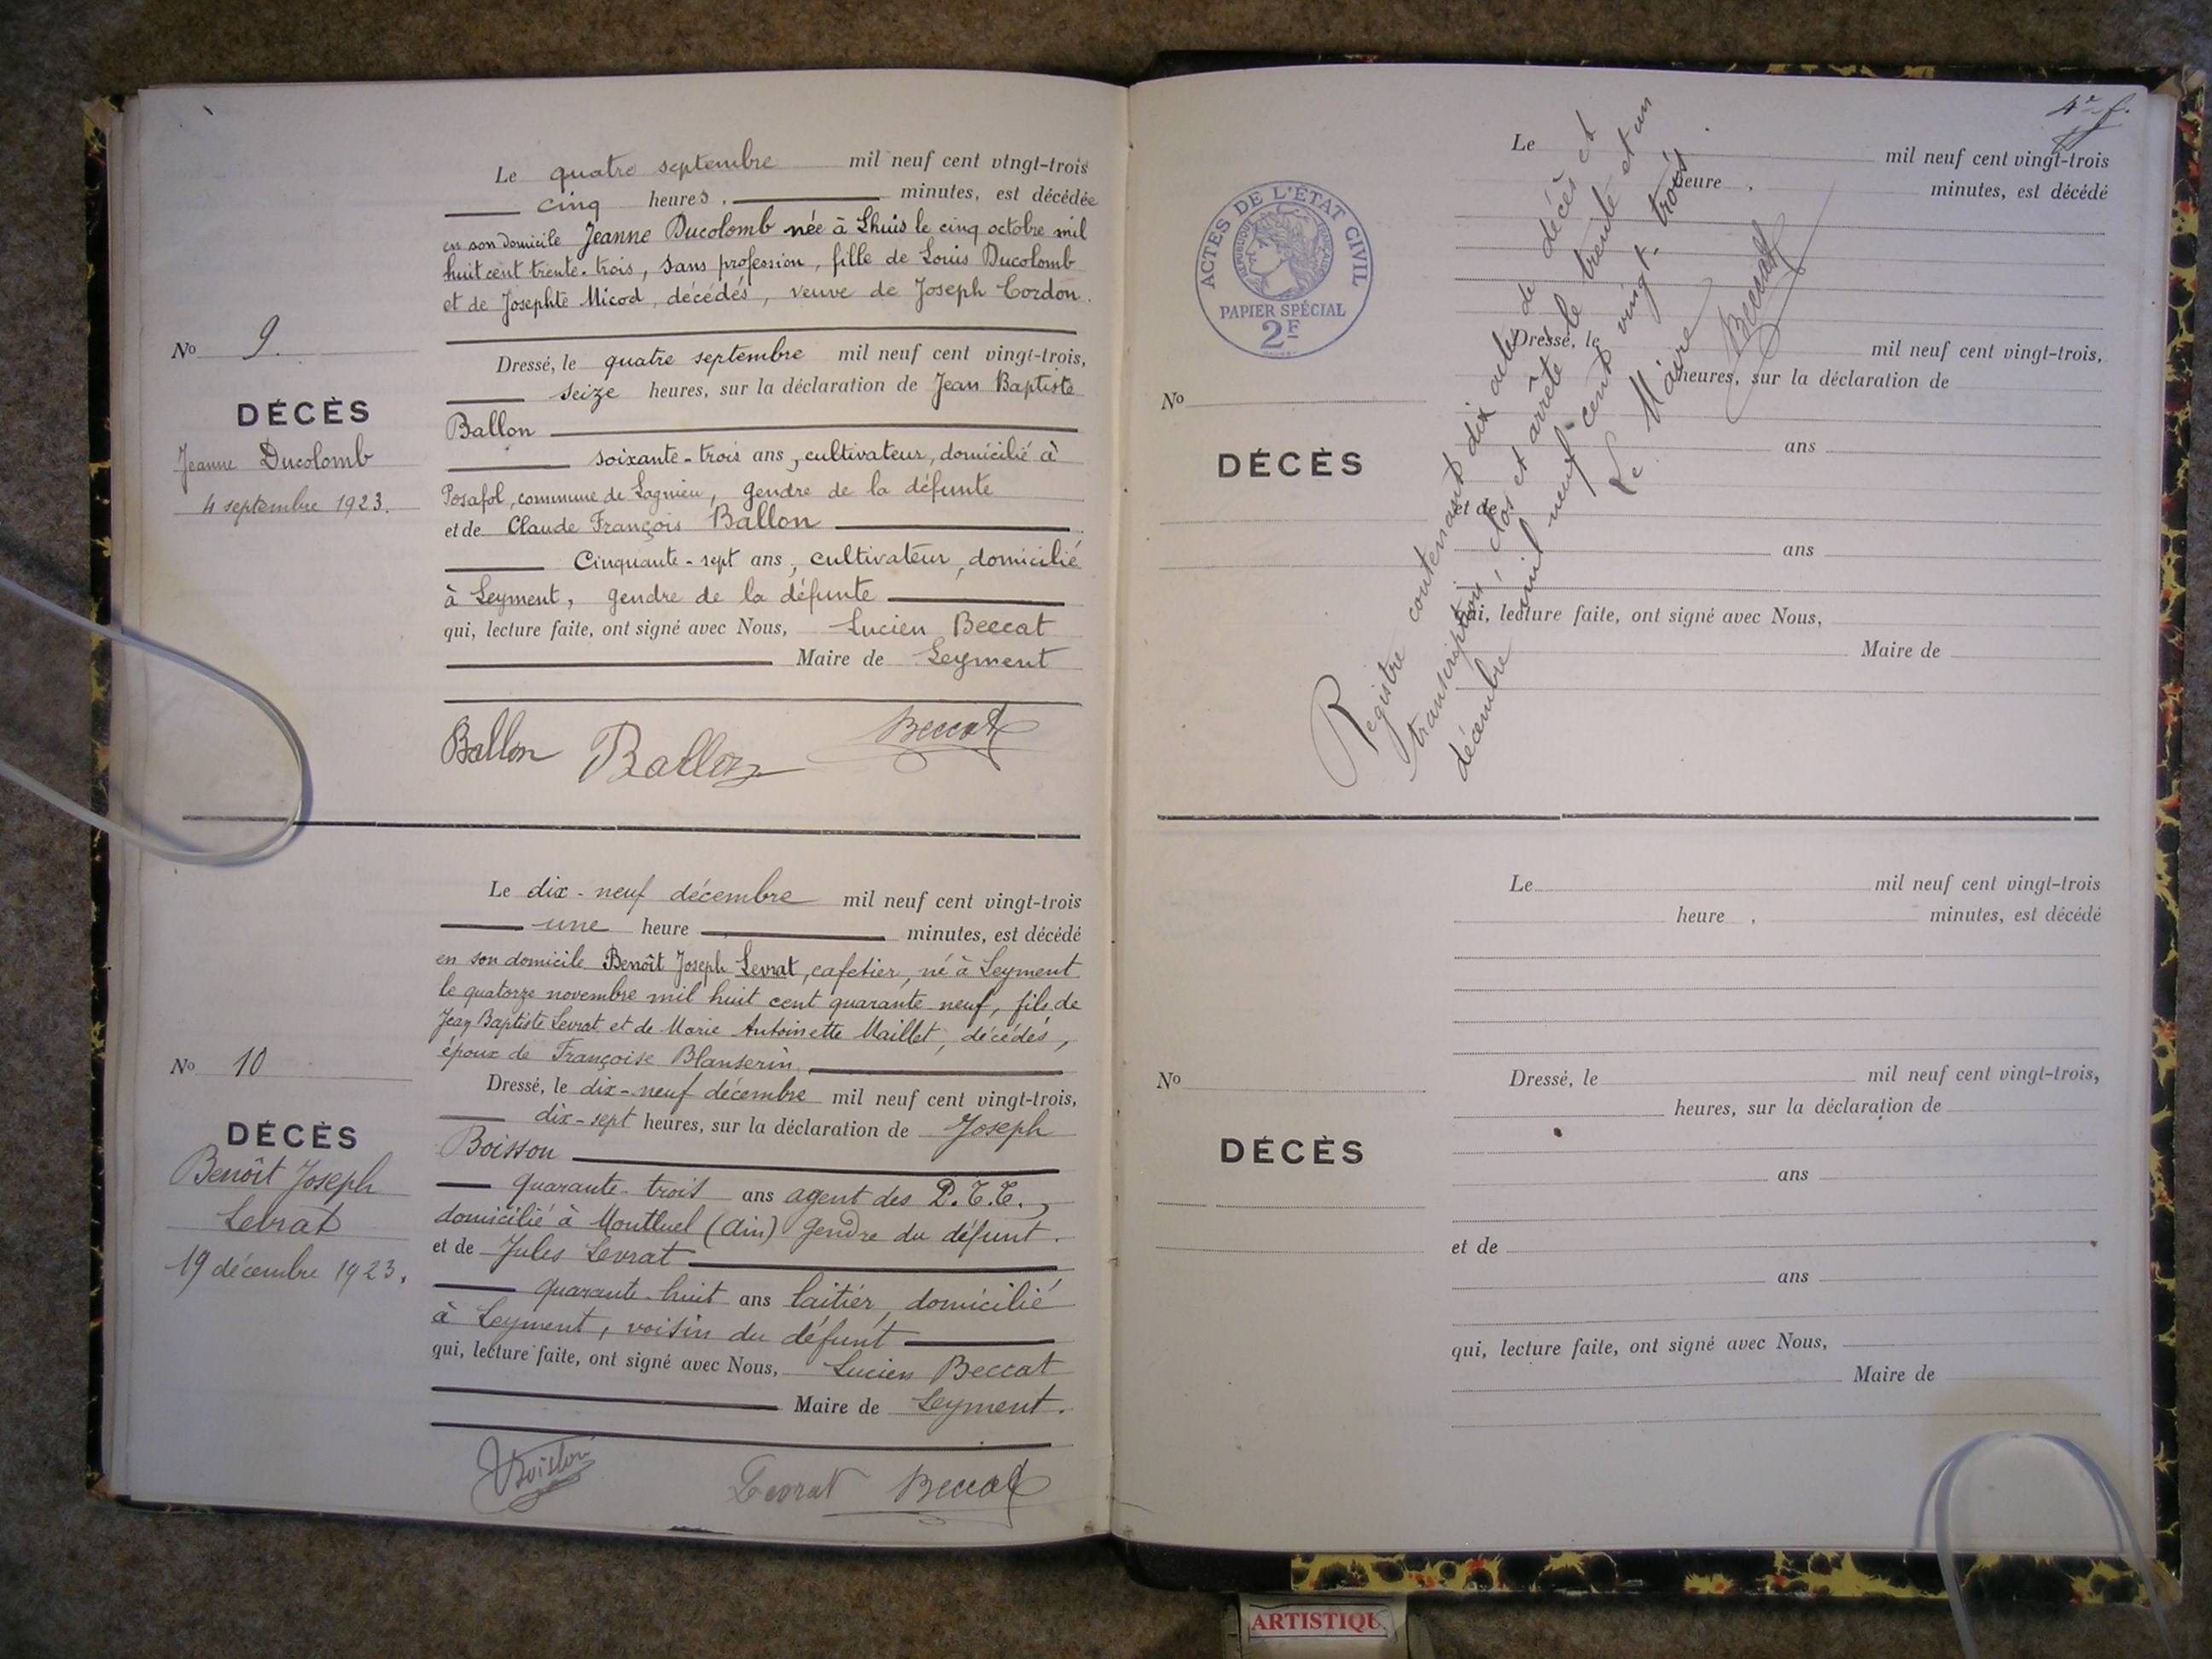 Le quatre septembre mil neuf cent vingt-trois
cinq heures, minutes, est décédée
en son domicile Jeanne Ducolomb née à Lhuis le cinq octobre mil
huit cent trente-trois, sans profession, fille de Louis Ducolomb
et de Josephte Micod, décédés, veuve de Joseph Cordon.
No 9.
Dressé, le quatre septembre mil neuf cent vingt-trois,
seize heures, sur la déclaration de Jean Baptiste
DÉCÈS
Ballon
Jeanne Ducolomb
soixante-trois ans, cultivateur, domicilié à
4 septembre 1923.
Posafol, commune de Lagnieu, gendre de la défunte
et de Claude François Ballon
Cinquante-sept ans, cultivateur, domicilié
à Leyment, gendre de la défunte
qui, lecture faite, ont signé avec Nous, Lucien Beccat
Maire de Leyment
Ballon Ballon Beccat
Le dix-neuf décembre mil neuf cent vingt-trois
une heure minutes, est décédé
en son domicile Benoît Joseph Levrat, cafetier, né à Leyment
le quatorze novembre mil huit cent quarante-neuf, fils de
Jean Baptiste Levrat et de Marie Antoinette Maillet, décédés,
époux de Françoise Blanserin
No 10
Dressé, le dix-neuf décembre mil neuf cent vingt-trois,
dix-sept heures, sur la déclaration de Joseph
DÉCÈS
Boisson
Benoît Joseph
Levrat
19 décembre 1923.
quarante-trois ans agent des P.T.T.,
domicilié à Montluel (Ain) gendre du défunt.
et de Jules Levrat
quarante-huit ans laitier, domicilié
à Leyment, voisin du défunt
qui, lecture faite, ont signé avec Nous, Lucien Beccat
Maire de Leyment.
Boisson Levrat Beccat
4e f.
Le mil neuf cent vingt-trois
heure , minutes, est décédé
ACTES DE L'ÉTAT CIVIL
RÉPUBLIQUE FRANÇAISE
PAPIER SPÉCIAL
2F
Dressé, le mil neuf cent vingt-trois,
heures, sur la déclaration de
No
DÉCÈS
ans
et de
ans
qui, lecture faite, ont signé avec Nous,
Maire de
Registre contenant dix actes de décès et
transcription, clos et arrêté le trente et un
décembre mil neuf cent vingt-trois.
Le Maire
Beccat
Le mil neuf cent vingt-trois
heure , minutes, est décédé
No
Dressé, le mil neuf cent vingt-trois,
heures, sur la déclaration de
DÉCÈS
ans
et de
ans
qui, lecture faite, ont signé avec Nous,
Maire de
ARTISTIQU